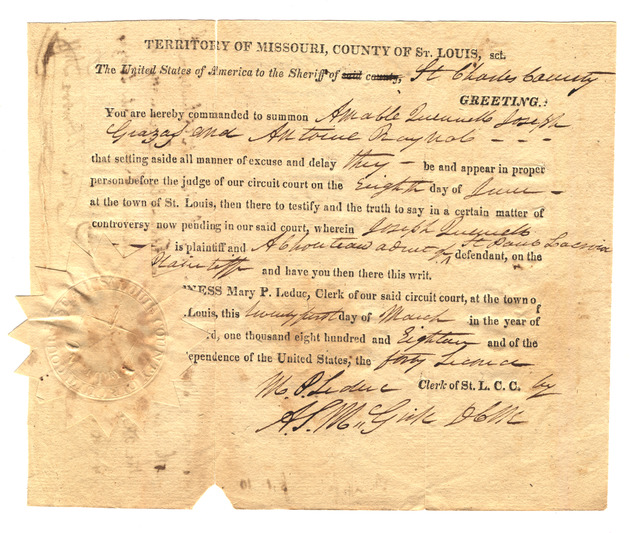 TERRITORY OF MISSOURI, COUNTY OF ST. LOUIS, sct.
The United States of America to the Sheriff of said county, St Charles County
GREETING:
You are hereby commanded to summon Amable Joseph
and Antoine Raynal
that setting aside all manner of excuse and delay they be and appear in proper
person before the judge of our circuit court on the Eighth day of June
at the town of St. Louis, then there to testify and the truth to say in a certain matter of
controversy now pending in our said court, wherein Joseph
is plaintiff and A Chouteau admr of St Paul Lacroix defendant, on the
Plaintiff and have you then there this writ.
NESS Mary P. Leduc, Clerk of our said circuit court, at the town of
Louis, this twenty first day of March in the year of
rd, one thousand eight hundred and Eighteen and of the
dependence of the United States, the forty Second
M. P. Leduc Clerk of St. L. C. C. by
A. S. McGirk